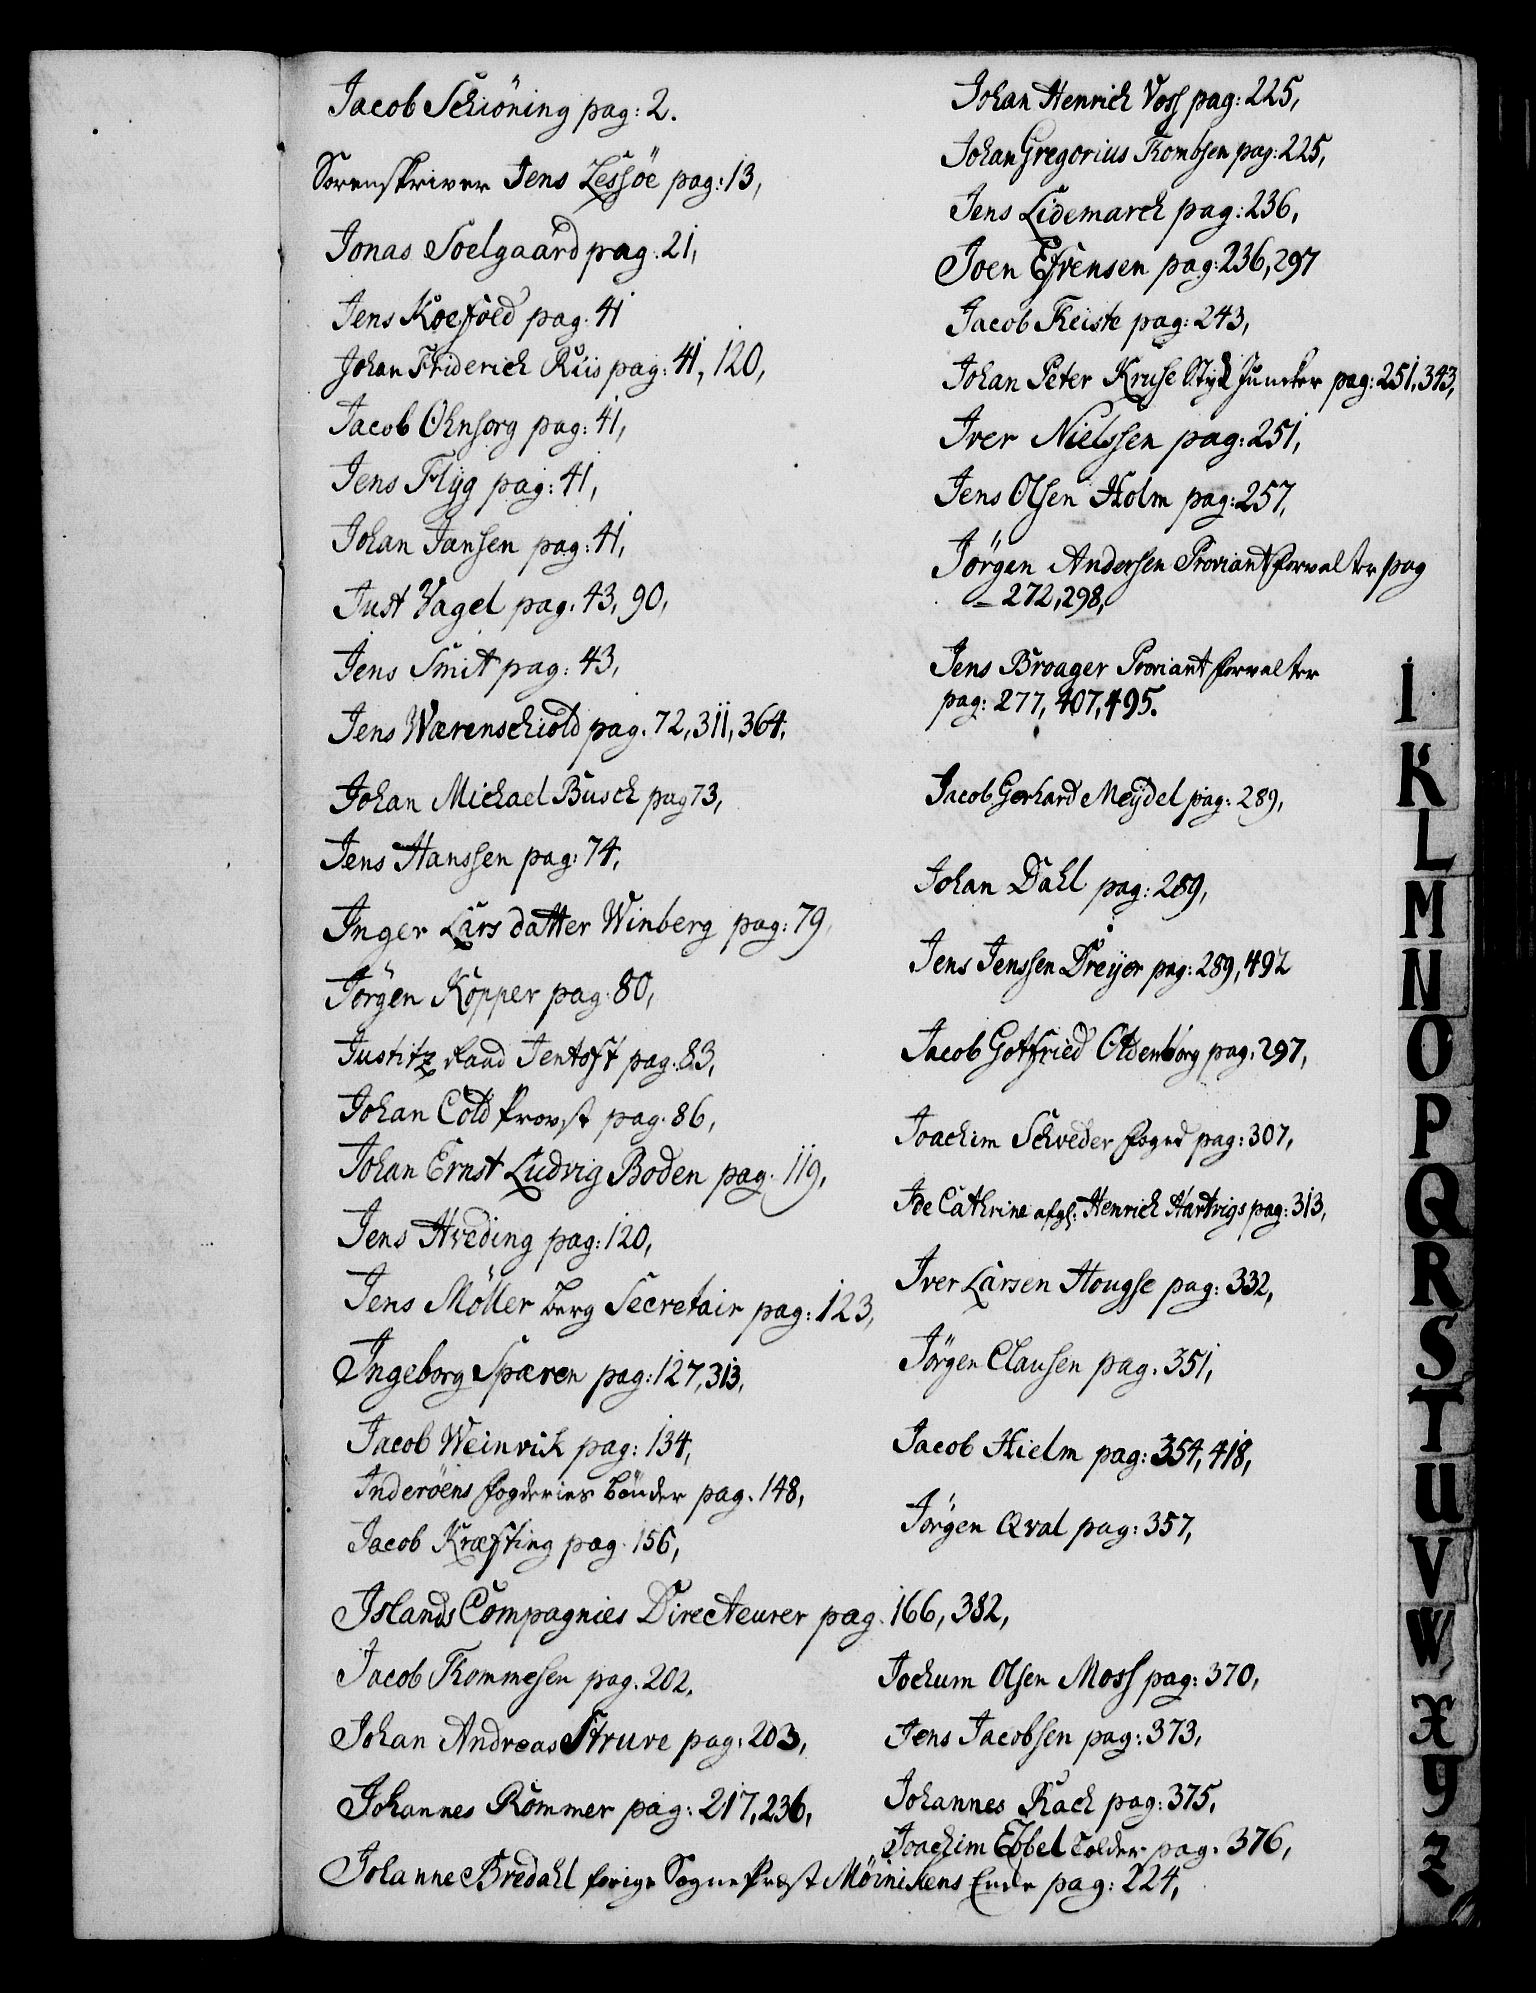 Jacob Schiöning pag: 2.
Sorenskriver Jens Lessöe pag: 13,
Jonas Soelgaard pag. 21,
Jens Koefoed pag. 41
Johan Friderich Riis pag: 41, 120,
Jacob Ohnsorg pag: 41,
Jens Flyg pag: 41,
Johan Jansen pag: 41,
Just Vagel pag. 43, 90,
Jens Smit pag: 43,
Jens Wærenschiold pag. 72, 311, 364.
Johan Michael Busch pag 73,
Jens Hanssen pag: 74,
Inger Lars datter Winberg pag: 79,
Jörgen Köpper pag. 80,
Justitz Raad Jentoft pag. 83,
Johan Cold Provst pag. 86,
Johan Ernst Ludvig Boden pag. 119,
Jens Hveding pag: 120,
Jens Möller Berg Secretair pag: 123,
Ingeborg Spæren pag: 127, 313,
Jacob Weinrich pag: 134,
Inderöens fogderies bönder pag. 148,
Jacob Kræfting pag. 156,
Islands Compagnies Directeurer pag. 166, 382,
Jacob Thommesen pag. 202,
Johan Andreas Struve pag: 203,
Johannes Rommer pag: 217, 236,
Johanne Bredahl forige Sogne Præst Möinichens Enke pag: 224,
Johan Henrich Voss pag: 225,
Johan Gregorius Thombsen pag: 225,
Jens Lidemarck pag: 236,
Joen Efrensen pag: 236, 297
Jacob Theiste pag: 243,
Johan Peter Kruse Styk Juncker pag: 251, 343,
Iver Nielssen pag: 251,
Jens Olsen Holm pag: 257,
Jörgen Andersen Proviantforvalter pag
272, 298,
Jens Broager Proviantforvalter
pag: 277, 407, 495.
Jacob Gerhard Meydel pag: 289,
Johan Dahl pag: 289,
Jens Jenssen Dreyer pag: 289, 492
Jacob Gotfried Oldenborg pag: 297,
Joachim Schveder foged pag: 307,
Ide Cathrine afgl: Henrich Hartvigs pag: 313,
Iver Larsen Hougse pag: 332,
Jörgen Clausen pag. 351,
Jacob Hielm pag: 354, 418,
Jörgen Qval pag: 357,
Jochum Olsen Moss pag: 370,
Jens Jacobsen pag: 373,
Johannes Rach pag: 375,
Joachim Ebbel Tolder pag. 376,
I
K
L
M
N
O
P
Q
R
S
T
U
V
W
X
Y
Z